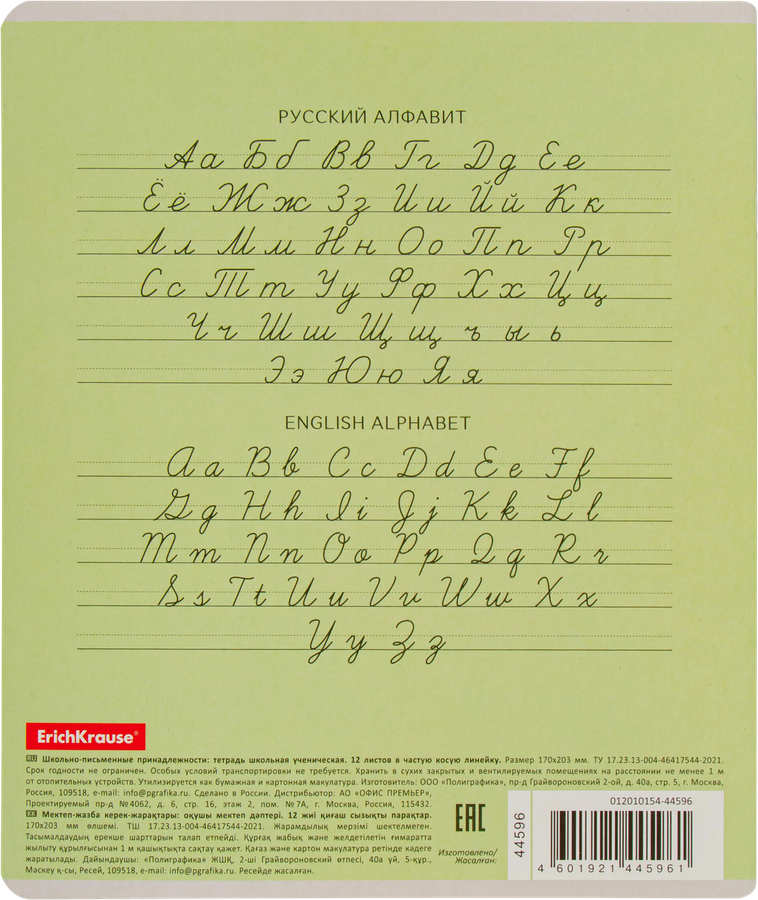 РУССКИЙ АЛФАВИТ
Аа Бб Вв Гг Дд Ее
Ёё Жж Зз Ии Йй Кк
Лл Мм Нн Оо Пп Рр
Сс Тт Уу Фф Хх Цц
Чч Шш Щщ ъ ы ь
Ээ Юю Яя
ENGLISH ALPHABET
Aa Bb Cc Dd Ee Ff
Gg Hh Ii Jj Kk Ll
Mm Nn Oo Pp Qq Rr
Ss Tt Uu Vv Ww Xx
Yy Zz
ErichKrause®
RU Школьно-письменные принадлежности: тетрадь школьная ученическая. 12 листов в частую косую линейку. Размер 170х203 мм. ТУ 17.23.13-004-46417544-2021.
Срок годности не ограничен. Особых условий транспортировки не требуется. Хранить в сухих закрытых и вентилируемых помещениях на расстоянии не менее 1 м
от отопительных устройств. Утилизируется как бумажная и картонная макулатура. Изготовитель: ООО «Полиграфика», пр-д Грайвороновский 2-ой, д. 40а, стр. 5, г. Москва,
Россия, 109518, e-mail: info@pgrafika.ru. Сделано в России. Дистрибьютор: АО «ОФИС ПРЕМЬЕР»,
Проектируемый пр-д №4062, д. 6, стр. 16, этаж 2, пом. №7А, г. Москва, Россия, 115432.
KK Мектеп-жазба керек-жарақтары: оқушы мектеп дәптері. 12 жиі қиғаш сызықты парақтар.
170х203 мм өлшемі. ТШ 17.23.13-004-46417544-2021. Жарамдылық мерзімі шектелмеген.
Тасымалдаудың ерекше шарттарын талап етпейді. Құрғақ, жабық және желдетілетін ғимаратта
жылыту құрылғысынан 1 м қашықтықта сақтау қажет. Қағаз және картон макулатура ретінде кәдеге
жаратылады. Дайындаушы: «Полиграфика» ЖШҚ, 2-ші Грайвороновский өтпесі, 40а үй, 5-құр.,
Маскеу қ-сы, Ресей, 109518, e-mail: info@pgrafika.ru. Ресейде жасалған.
EAC
Изготовлено/
Жасалған:
44596
012010154-44596
4 601921 445961